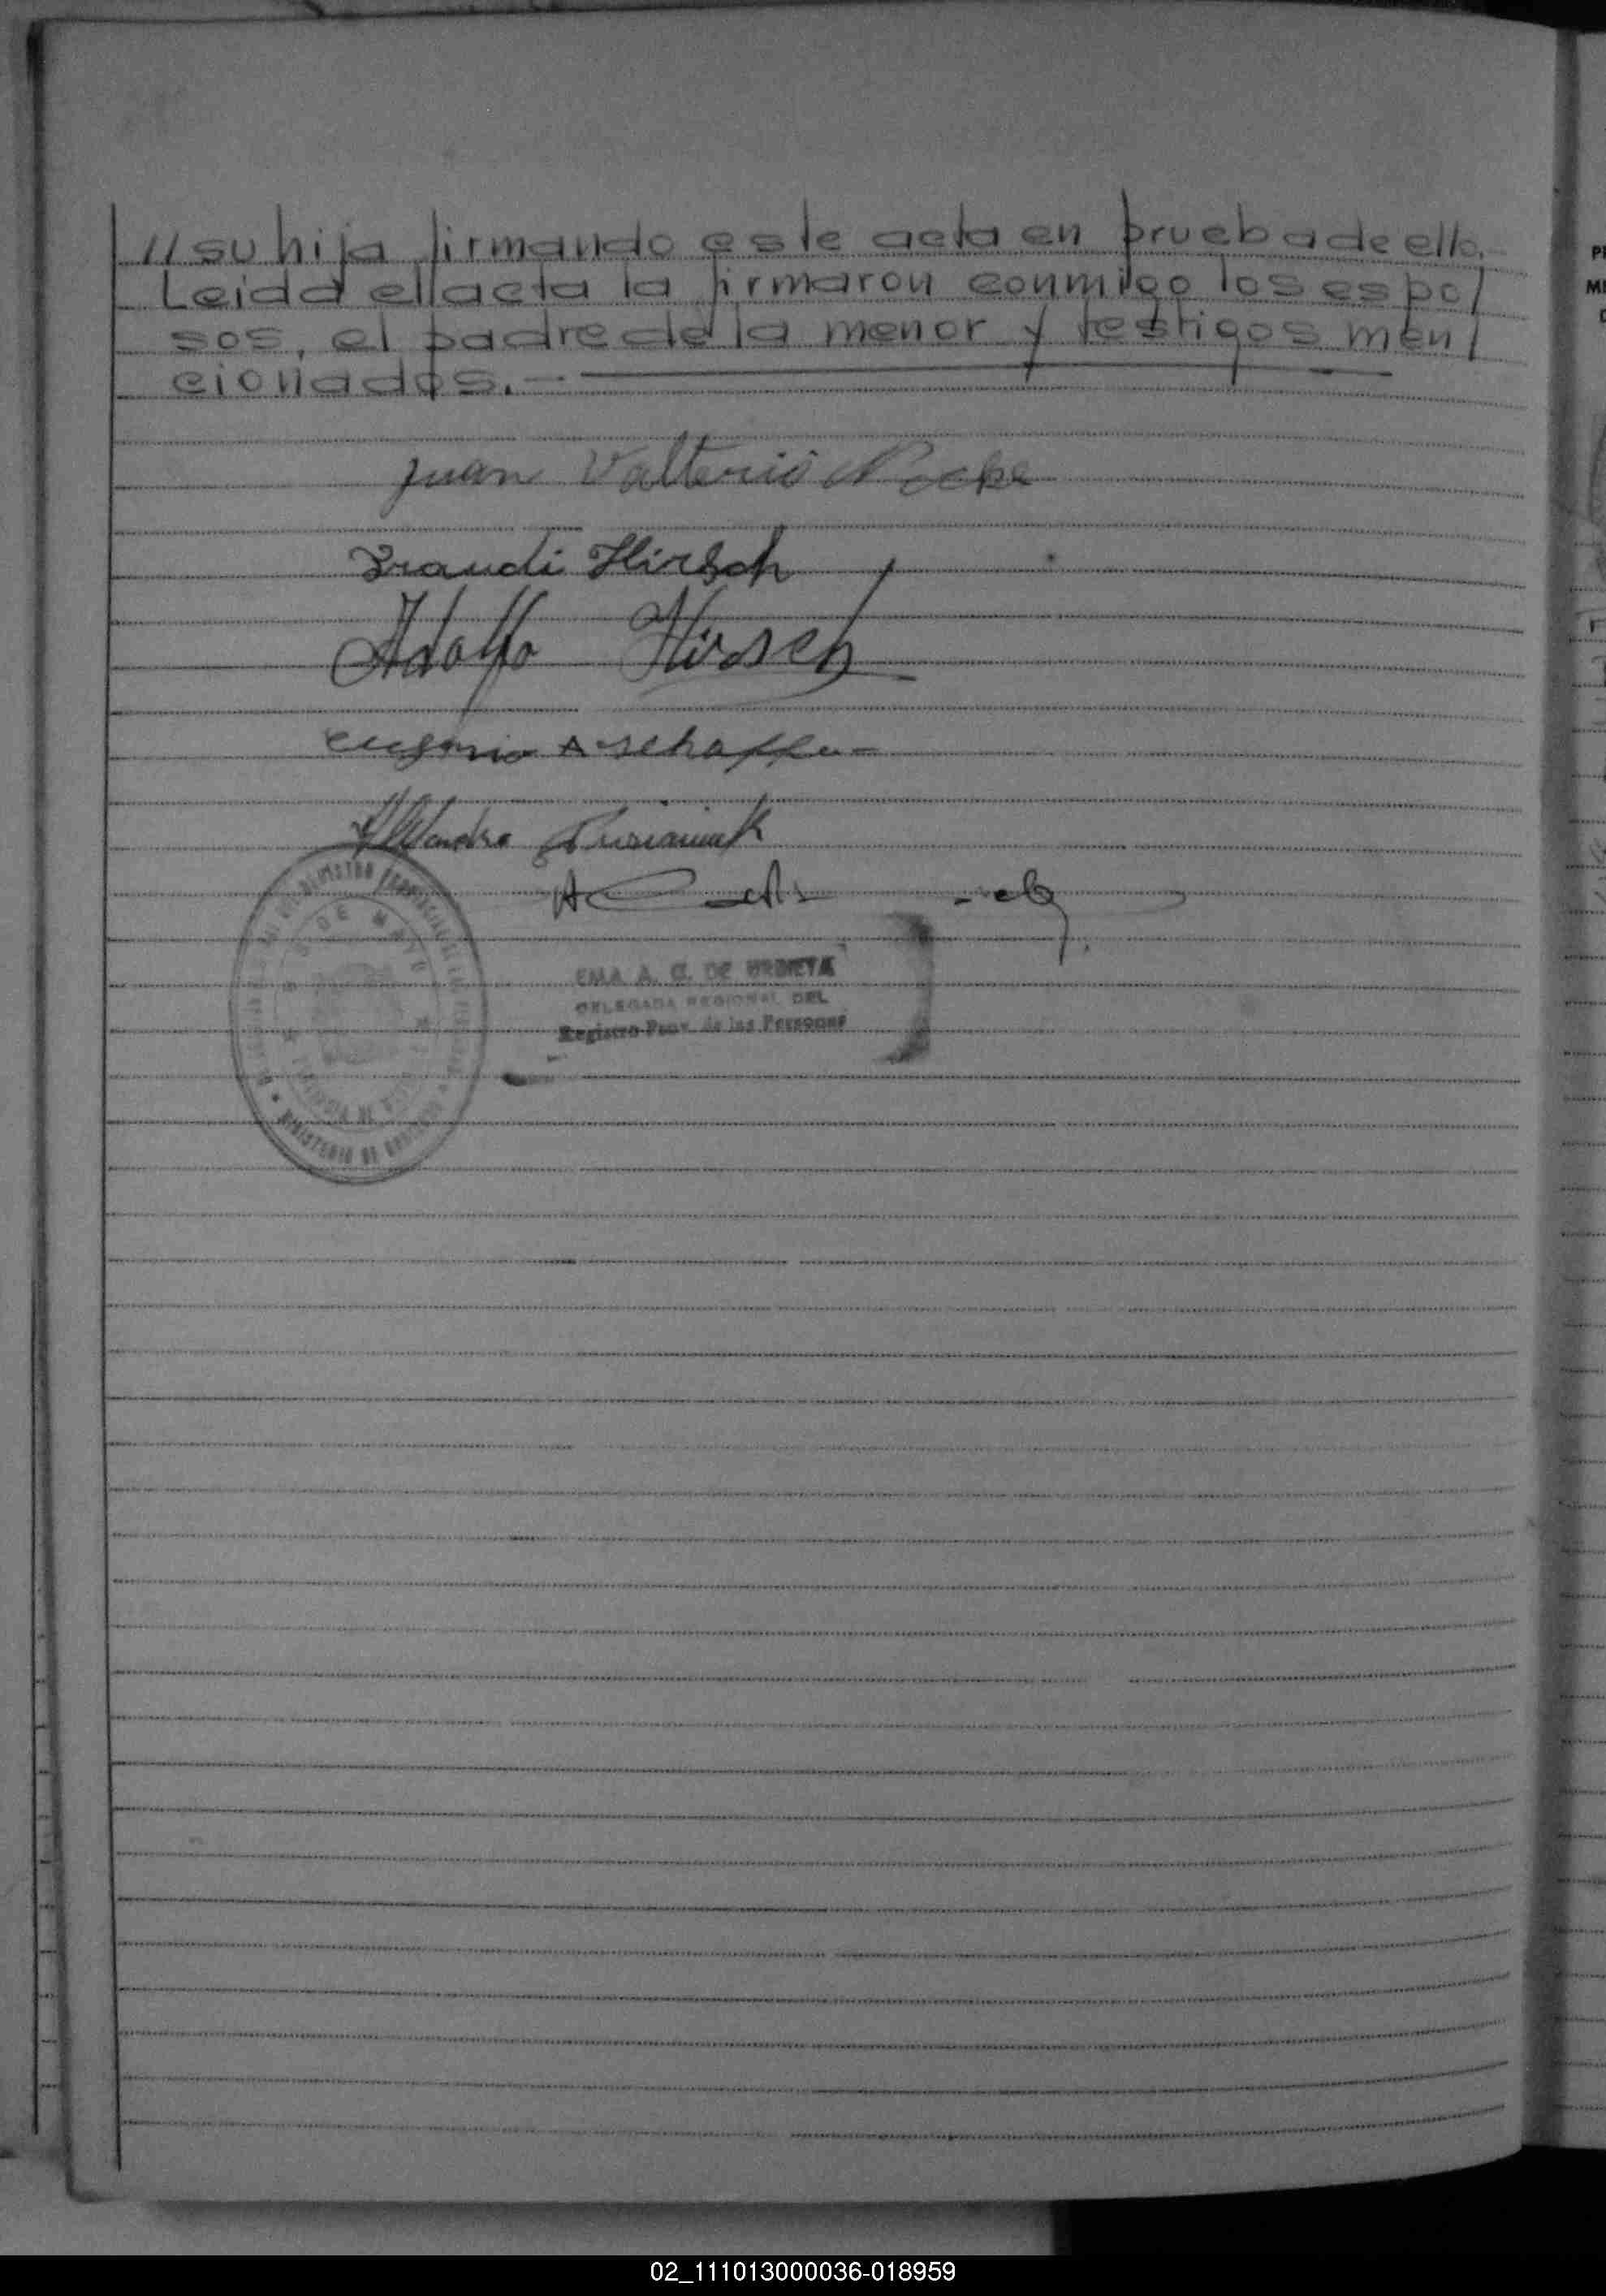 // su hija firmando este acta en prueba de ello.-
Leida el acta la firmaron conmigo los espo/
sos, el padre de la menor y testigos men/
cionados.-
Juan Valterio
Traudi Hirsch
Adolfo Hirsch
Eugenio A Schaffer
EMA A. G. DE URDIETA
DELEGADA REGIONAL DEL
Registro Prov. de las Personas
8 DE MAYO
MINISTERIO DE GOBIERNO
02_111013000036-018959